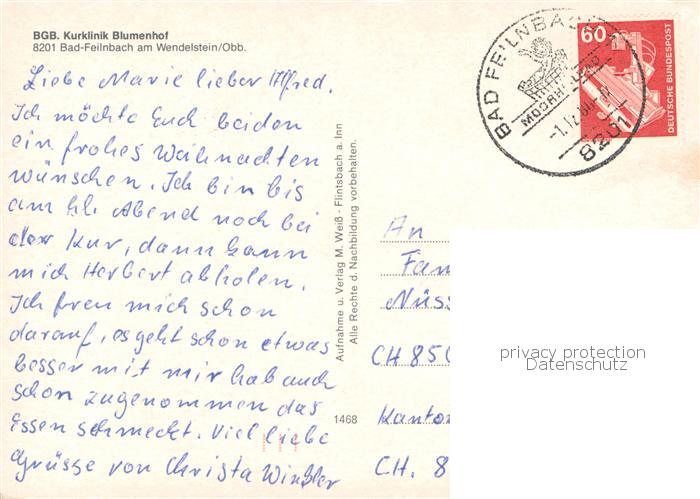 BGB. Kurklinik Blumenhof
8201 Bad-Feilnbach am Wendelstein/Obb.
Liebe Marie lieber Alfred.
Ich möchte Euch beiden
ein frohes Weihnachten
wünschen. Ich bin bis
am hl. Abend noch bei
der Kur, dann kann
mich Herbert abholen.
Ich freu mich schon
darauf, es geht schon etwas
besser mit mir hab auch
schon zugenommen das
Essen schmeckt. Viel liebe
Grüsse von Christa Winkler
Aufnahme u. Verlag M. Weiß - Flintsbach a. Inn
Alle Rechte d. Nachbildung vorbehalten.
1468
BAD FEILNBACH
8201
60
DEUTSCHE BUNDESPOST
An
Fam
Nüss
CH 850
Kanton
CH. 8
privacy protection
Datenschutz